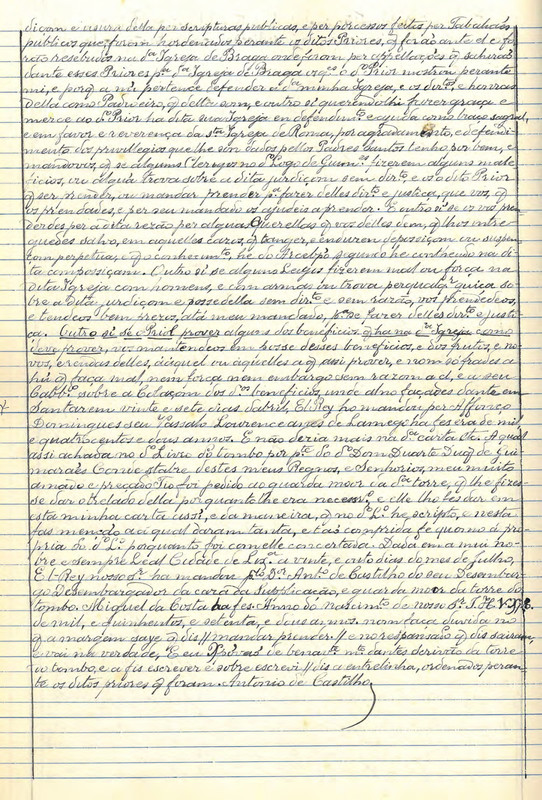 diçom e usura della per scripturas publicas, e per processos feitos por Tabaliaẽs
publicos que foram hordenados perante os ditos Priores, q̃ forão ante el e fo-
rão reservados na dta Igreja de Braga onde foram, por appellações q̃ sahirão
dante esses Priores pa dta Igreja de Braga o dto Prior mostrou perante
mi, e porq̃ a mi pertence defender a dta minha Igreja, e os dirtos e honrras
della como Padroeiro, q̃ della som, e outro si querendolhi fazer graça e
merce ao dto Prior ha dita sua Igreja em defendimto e ajuda como braço sagral,
e em favor e reverença da sta Igreja de Roma, por agradamto, e defendi-
mento dos privillegios que lhe son dados pellos Padres Santos tenho por bem, e
mandovos, q̃ se alguns Clerigos no dto Logo de Guimes fizerem alguns male-
ficios, ou alguã trova sobre a dita jurdiçom sem dirto e os o dito Prior
q̃ser prender, ou mandar prender, pa fazer delles dirto e justiça, que vos, q̃
os prendades, e per seu mandado os ajudeis a prender. E outro si se os vos pren-
derdes per a dita rezão per algumas Querellas q̃ vos delles dem, q̃ lhos entre-
guedes salvo, em aquelles casos, q̃ tanger, e ensurem deposiçom ou suspen-
tom perpetua, q̃ o conhecimto, he do Arcebpo, segundo he contheudo na di-
ta composiçam. Outro si se alguns Leigos fizerem mal ou força na
dita Igreja com homens, e com armas ou trova per qualqr guiza so-
bre a dita jurdiçom e posse della sem dirto e sem razão, vos prendedeos,
e tendeos bem prezos, atá meu mandado, pa se fazer delles dirto e justi-
ça. Outro si se o Priol prover alguns dos beneficios, q̃ ha na dta Igreja como
deve prover, vos mantendeos em posse desses beneficios, e dos fruitos, e no-
vos, e rendas delles, aáquel ou aquelles a q̃ assi prover, e nom sofrades a
hi q̃ faça mal, nem força nem embargo sem razom a el, e a seu
Cabbo sobre a dotaçom dos dtos beneficios, unde al no façades dante em
Santarem vinte e sete dias dabril, El Rey ho mandou per Affonso
Domingues seu Vassalo Lourence annes de Lamego ha fes era de mil
e quatrocentos e dous annos. E não dezia mais na dta carta
assi achada no dto Livro do tombo por pte do Sr Dom Duarte Duq̃ de Gui-
marães Condestabre destes meus Regnos, e Senhorios, meu muito
amado e prezado Tio foi pedido ao guarda moor da dta torre, q̃ lhe fizes-
se dar o treslado della por quanto lhe era necesso, e elle lho fes dar em
esta minha carta assi, e da maneira, q̃ no dto Lo he scripto, e nesta
fas menção aoqual daram tanta, e tão comprida fé quomo á pro-
pria do dto Lo. porquanto foi com elle concertada. Dada em a mui no-
bre e sempre Leal Cidade de Lixa a vinte, e outo dias do mes de Julho,
El-Rey nosso Sr ha mandou plo Dor Anto de Castilho do seu Desembar-
go Dezembargador da caza da Suplicação, e guarda moor da torre do
tombo. Miguel da Costa ha fes. Anno do nascimto de nosso Sr
de mil, e quinhentos, e setenta, e dous annos. nom faça duvida no
q̃ a margem saye q̃ dis // mandar prender // e no respansado q̃ dis sairam,
e vai na verdade, E eu de benavte mto dantes scrivão da torre
do tombo, e a fis escrever e sobre escrevi // dis a entrelinha, ordenados peran-
te os ditos priores q̃ foram. Antonio de Castilho